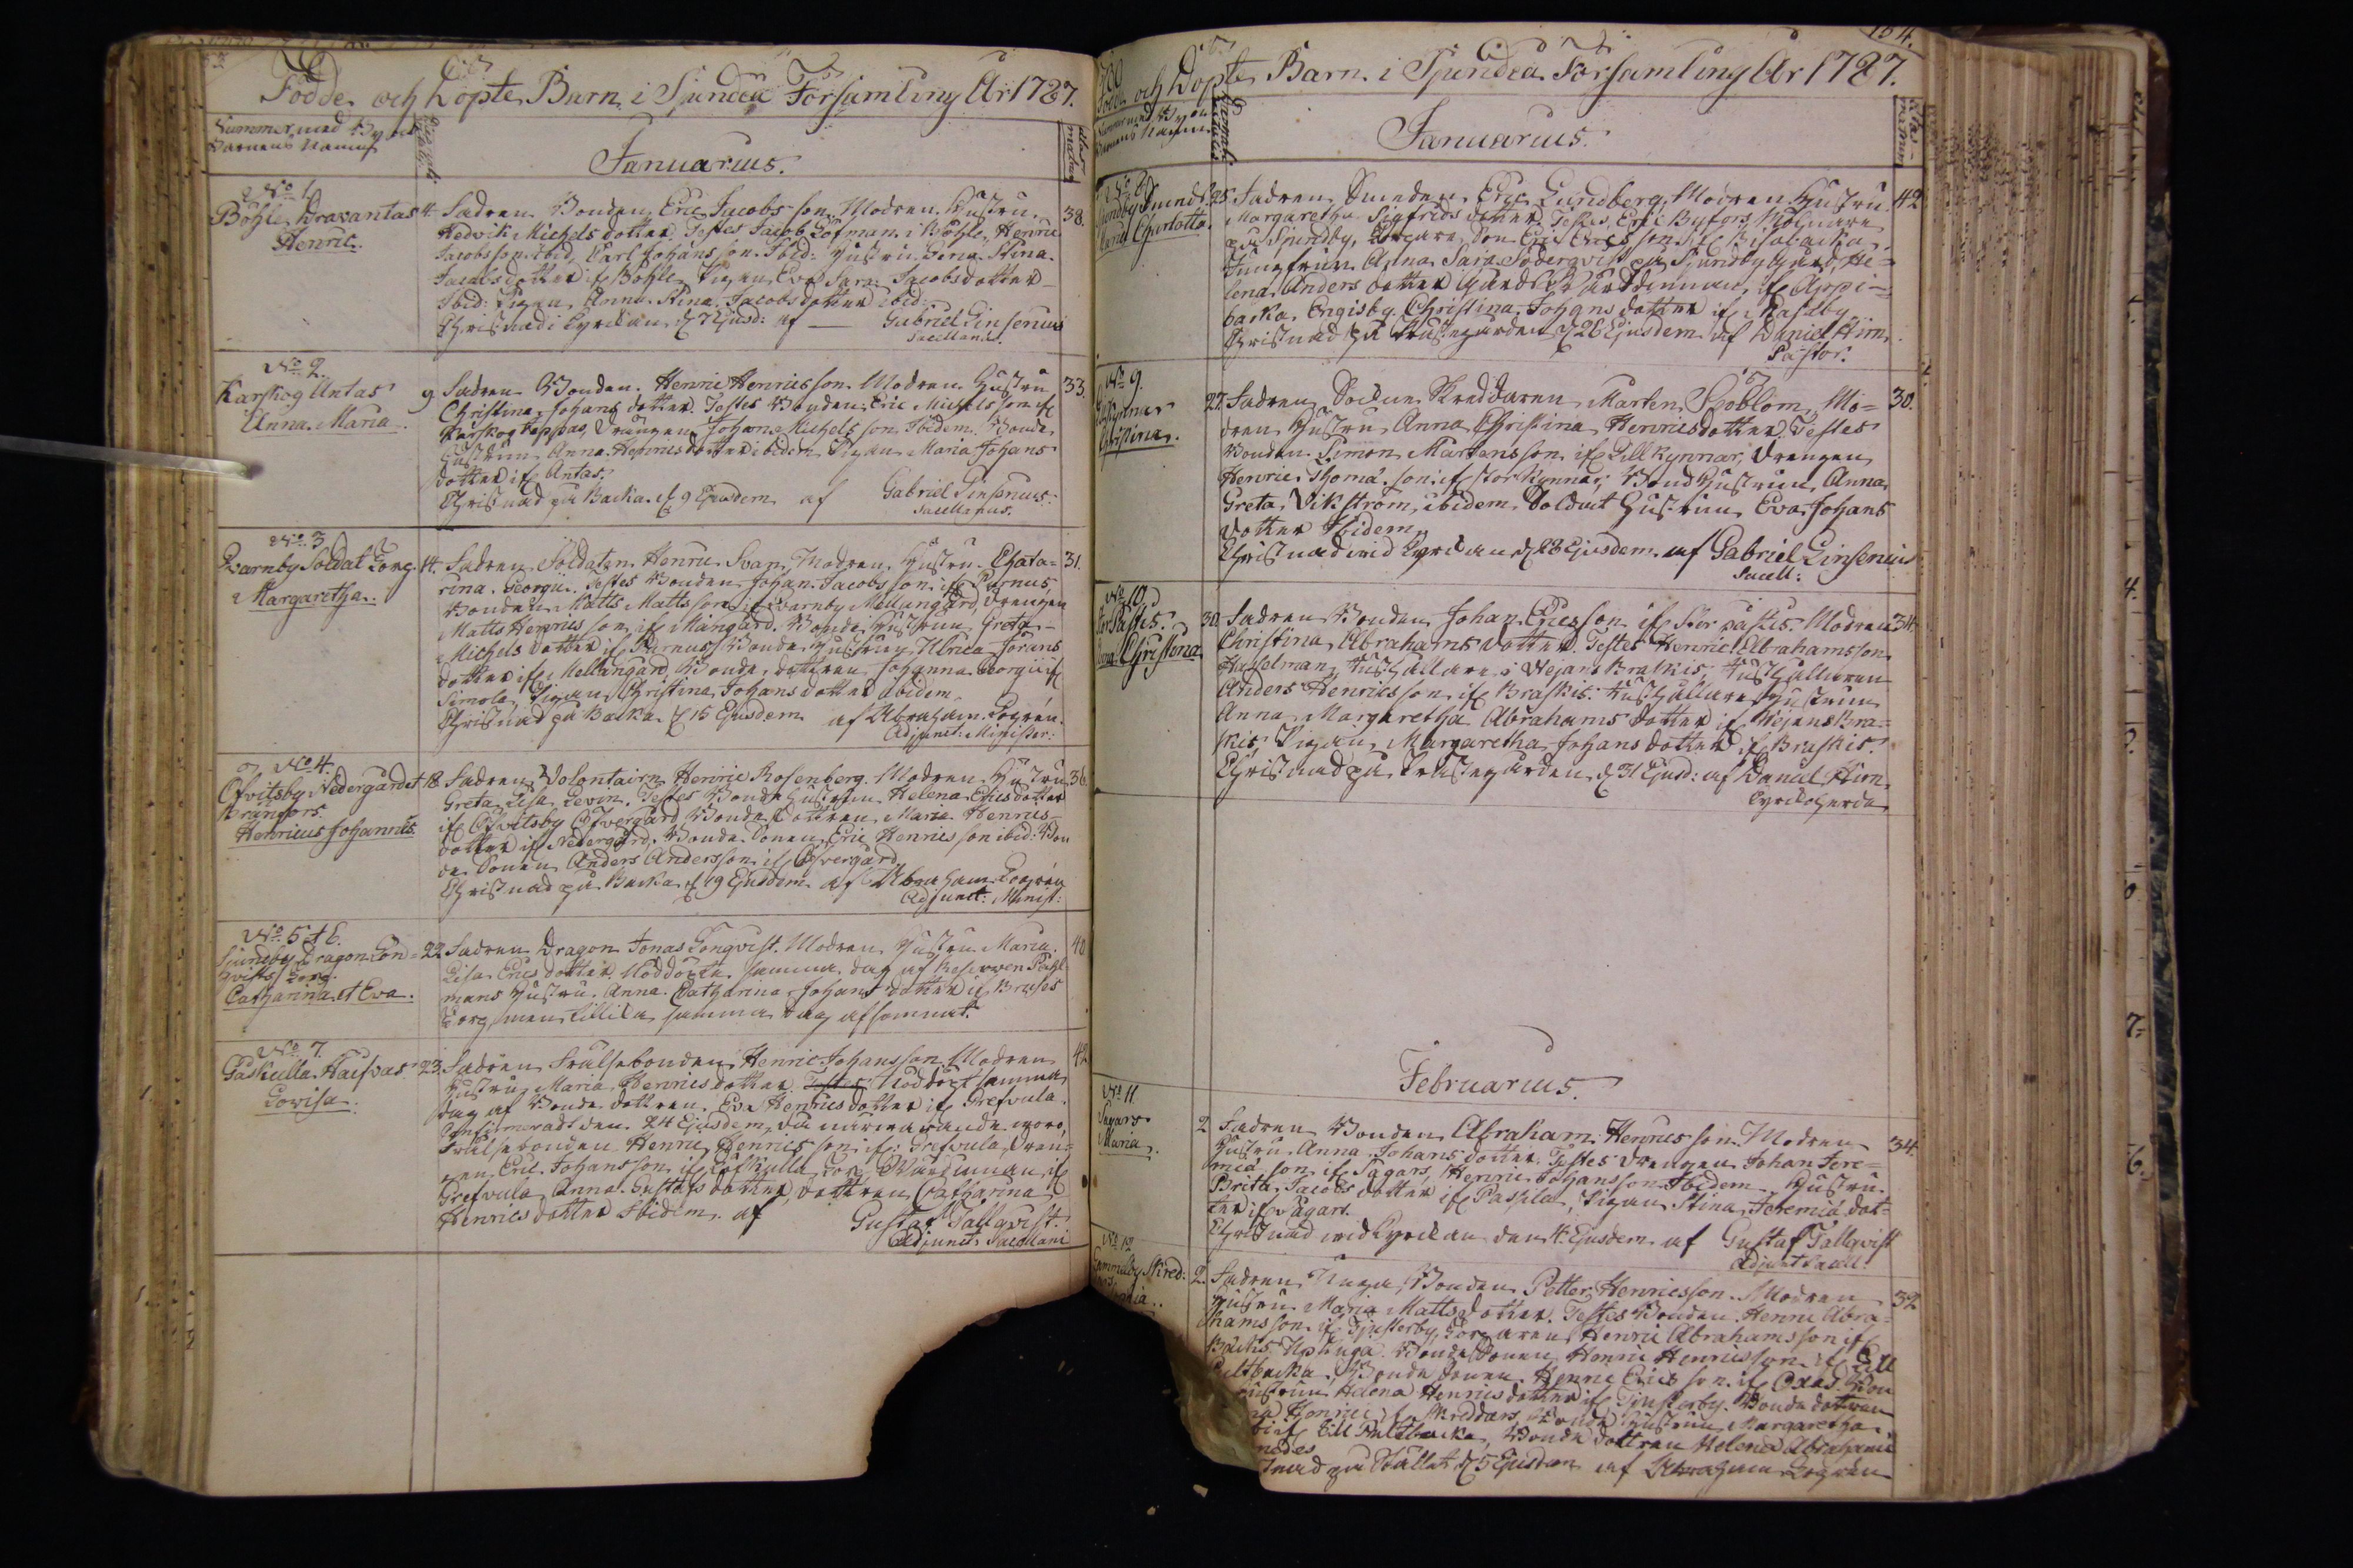 Födde och Döpte Barn i Sjundeå Församling År 1787.
Nummer med Byens
Barnens Namn
Januarius.
No 1.
Böhle Dravantas
Henric.
4. Fadren Bonden Eric Jacobs son Modren Hustru 38.
Hedvik Michels dotter Testes Jacob Löfman i Böhle, Henric
Jacobsson ibid, Carl Johans son Ibid: Hustru Lena Stina
Jacobsdotter if Böhle Pigan Eva Sara Jacobsdotter
Ibid: Pigan Anna Stina Jacobsdotter ibid:
Christnad i Kyrckan d 7 Ejusd: af Gabriel Linsenius
Sacellan.
No 2.
Karskog Antas
Anna Maria.
9 Fadren Bonden Henric Henricsson. Modren Hustru 33.
Christina Johans dotter. Testes Bonden Eric Michelsson if
Karskog Foppas, Drängen Johan Michels son Ibidem. Bonde
Hustrun Anna Henricsdotter ibidem Pigan Maria Johans
dotter if Antas.
Christnad på Backa d 9 Ejusdem af Gabriel Linsenius.
Sacellanus.
No 3
Qvarnby Soldat Torp.
Margaretha.
14. Fadren Soldaten Henric Svan, Modren Hustru Chata= 31.
rina Georgii. Testes Bonden Johan Jacobs son if Purnus
Bonden Matts Matts son if Qvarnby Mellangård, Drängen
Matts Henrics son if Mängård. Bonde Hustrun Greta
Michels dotter if Purnus Bonde Hustrun Ulrica Jörans
dotter if Mellangård, Bonde dottren Johanna Georgii if
Simola, Pigan Christina Johans dotter ibidem
Christnad på Backa d 15 Ejusdem af Abraham Logrén.
Adjunct: Minister:
No 4.
Ofvitsby Nedergårdet
Kränfors.
Henricus Johannes.
18 Fadren Volontairn Henric Rosenberg Modren Hustru 36.
Greta Lisa Levin. Testes Bonde Hustrun Helena Ericsdotter
if Ofvitsby Öfvergård, Bonde dottren Maria Henrics
dotter if Nedergård, Bonde Sonen Eric Henrics son ibid: Bon
de Sonen Anders Andersson if Öfvergård.
Christnad på Backa d 19 Ejusdem af Abraham Logrén
Adjunct: Minist:
No 5 et 6.
Sjundby Dragon Lön=
qvists Torp.
Catharina et Eva.
22 Fadren Dragon Jonas Lönqvist. Modren Hustru Maria 40
Lisa Erics dotter Nöddöpte samma dag af Reserven Påhl
mans Hustru Anna Catharina Johans dotter if Bruses
Torp, men tillika samma dag afsomnat.
No 7.
Gåskulla Haifvas
Lovisa.
23. Fadren Frälsebonden Henric Johansson Modren 42
Hustru Maria Henricsdotter Nöddöpt samma
dag af Bonde dottren Eva Henricsdotter if Grefvula.
Confirmeradt den 24 Ejusdem, då närvarande voro,
Frälsebonden Henric Henrics son if Grefvula, Drän=
gen Eric Johansson if Gåskulla, och Värdinnan if
Grefvula Anna Gustafs dotter, dottren Catharina
Henrics dotter Ibidem. af Gustaf Tallqvist.
Adjunct: Sacellani
184.
Födde och Döpte Barn i Sjundeå Församling År 1787.
Nummer med Byens
Barnens Namn
Januarius.
No 8.
Sjundby Smeds
Lena Charlotta.
25. Fadren Smeden Eric Lundberg, Modren Hustru 42
Margaretha Sigfrids dotter Testes Eric Byfors, Mölnare
på Sjundby,
Jungfrun Anna Sara Söderqvist på Sjundby gård, He=
lena Anders dotter
backa Engisby. Christina Johans dotter if Kasaby
Christnad på Prästegården d 26 Ejusdem af Daniel Hirn
Pastor.
No 9.
Christina.
27. Fadren Sockne Skreddaren Mårten Sjöblom, Mo= 30.
dren Hustru Anna Christina Henricsdotter. Testes
Bonden Simon Mårtensson if Lillkynnar, Drängen
Henric Thoma son if Storkynnar; Bond Hustrun Anna
Greta Vikström, ibidem Soldat Hustrun Eva Johans
dotter Ibidem.
Christnad vid Kyrckan d 28 Ejusdem af Gabriel Linsenius
Sacell:
No 10.
Stor Påstis.
Christina
30 Fadren Bonden Johan Erics son if Stor påstis. Modren 34
Christina Abrahams dotter. Testes Henric Abrahamsson
Hasselman, Husthållare i Wejans Braskis, Husthållaren
Anders Henrics son if Braskis. Husthållare Hustrun
Anna Margaretha Abrahams dotter if Wejans Bra=
skis, Pigan Margaretha Johans dotter if Braskis.
Christnad på Prästegården d 31 Ejusd: af Daniel Hirn
Kyrckoherde
Februarius.
No 11.
Sagars
Maria.
2 Fadren Bonden Abraham Henrics son Modren 34.
Hustru Anna Johans dotter. Testes Drengen Johan Jere=
mia son if Sagars, Henric Johansson Ibidem Hustru
Brita Jacobs dotter if Paskila, Pigan Stina Jeremiæ dot=
ter if Sagars.
Christnad vid Kyrckan den 4 Ejusdem af Gustaf Tallqvist
Adjunct Sacell:
No 12
Skred:
2. Fadren Unga Bonden Petter Henricsson. Modren 32
Hustru Maria Mattsdotter. Testes Bonden Henric Abra=
hamsson if Tjusterby, Torparen Henric Abrahamsson if
Bonde Sonen Henric Henricsson if Lill
Pultbacka, Bonde Sonen Henric Erics son if Oxas Bon
Hustrun Helena Henricsdotter if Tjusterby. Bonde dottren
Henrici if Skreddars, Bonde Hustrun Margaretha
if Lill Pultbacka, Bonde dottren Helena Abrahami
på Stället d 5 Ejusdem af Abraham Logrén